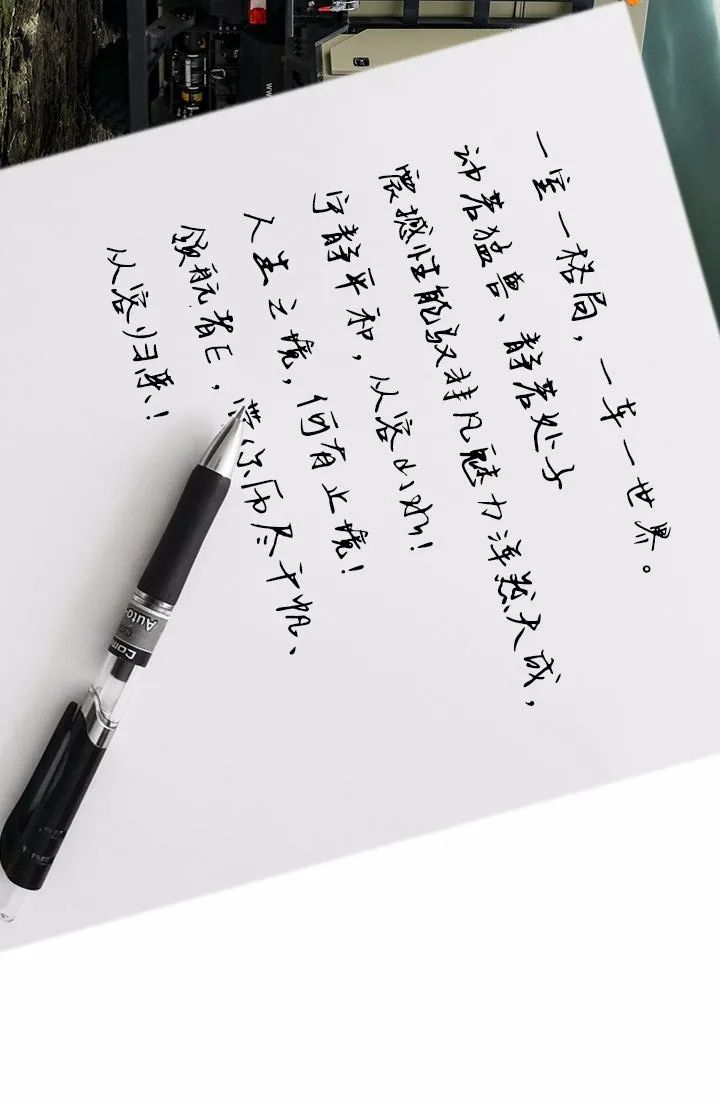 一室一格局，一车一世界。
动若猛兽、静若处子
震撼性能驭非凡魅力浑然天成，
宁静平和，从容以对！
人生之境，何有止境！
领航者E，带你历尽千帆、
从容归来！
Auto
Com
www